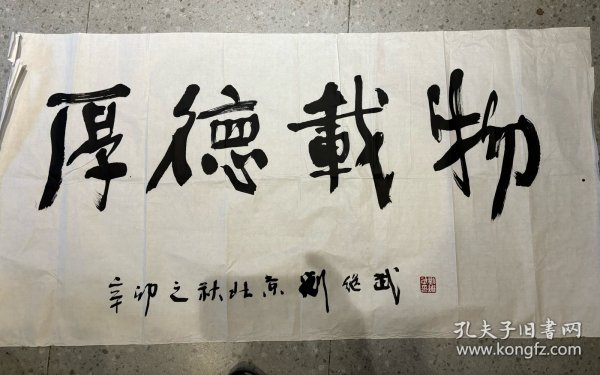 厚德載物
辛卯之秋北京劉繼武
孔夫子旧书网
www.kongfz.com